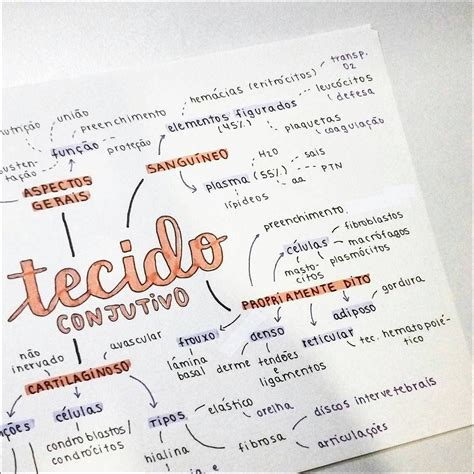 nutrição
união
preenchimento
função
proteção
susten-
tação
ASPECTOS
GERAIS
SANGUÍNEO
hemácias (eritrócitos)
transp.
O2
elementos figurados
(45%)
leucócitos
defesa
plaquetas
coagulação
plasma (55%)
H2O
sais
PTN
aa
lípideos
tecido
CONJUTIVO
preenchimento
células
fibroblastos
macrófagos
plasmócitos
masto-
citos
PROPRIAMENTE DITO
frouxo
lâmina
basal
denso
derme
tendões
e
ligamentos
reticular
tec. hematopoié-
tico
adiposo
gordura
não
inervado
avascular
CARTILAGINOSO
nções
células
condroblastos/
condrócitos
tipos
elástico
orelha
hialina
fibrosa
discos intervertebrais
articulações